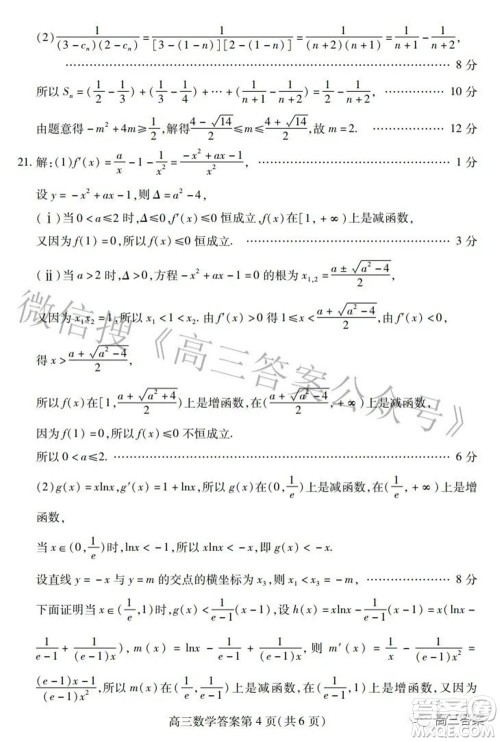 (2) 1/((3-cₙ)(2-cₙ)) = 1/([3-(1-n)][2-(1-n)]) = 1/((n+2)(n+1)) = 1/(n+1) - 1/(n+2),
………… 8 分
所以 Sₙ=(1/2-1/3)+(1/3-1/4)+…+(1/(n+1)-1/(n+2))=1/2-1/(n+2), ………… 10 分
由题意得-m²+4m≥1/2,解得(4-√14)/2≤m≤(4+√14)/2,故 m=2. ………… 12 分
21. 解:(1)f′(x)=a/x-1-1/x²=(-x²+ax-1)/x², ………… 1 分
设 y=-x²+ax-1,则 Δ=a²-4,
(ⅰ)当 0<a≤2 时,Δ≤0,f′(x)≤0 恒成立,f(x)在[1,+∞)上是减函数,
又因为 f(1)=0,所以 f(x)≤0 恒成立. ………… 3 分
(ⅱ)当 a>2 时,Δ>0,方程-x²+ax-1=0 的根为 x₁,₂=(a±√(a²-4))/2,
又因为 x₁x₂=1,所以 x₁<1<x₂,所以由 f′(x)>0 得 1≤x<(a+√(a²-4))/2,由 f′(x)<0,
得 x>(a+√(a²-4))/2,
所以 f(x)在[1,(a+√(a²+4))/2)上是增函数,在((a+√(a²-4))/2,+∞)上是减函数,
因为 f(1)=0,所以 f(x)≤0 不恒成立.
所以 0<a≤2. ………… 6 分
(2)g(x)=xlnx,g′(x)=1+lnx,所以 g(x)在(0,1/e)上是减函数,在(1/e,+∞)上是增
函数,
当 x∈(0,1/e)时,lnx<-1,所以 xlnx<-x,即 g(x)<-x.
设直线 y=-x 与 y=m 的交点的横坐标为 x₃,则 x₁<x₃=-m, ………… 8 分
下面证明当 x∈(1/e,1)时,g(x)<1/(e-1)(x-1),设 h(x)=xlnx-1/(e-1)x
+1/(e-1)=x(lnx-1/(e-1)+1/((e-1)x)),m(x)=lnx-1/(e-1)+1/((e-1)x),则 m′(x)=1/x-1/((e-1)x²)=
((e-1)x-1)/((e-1)x²),
高三数学答案第 4 页(共 6 页)
微信搜《高三答案公众号》
高三答案